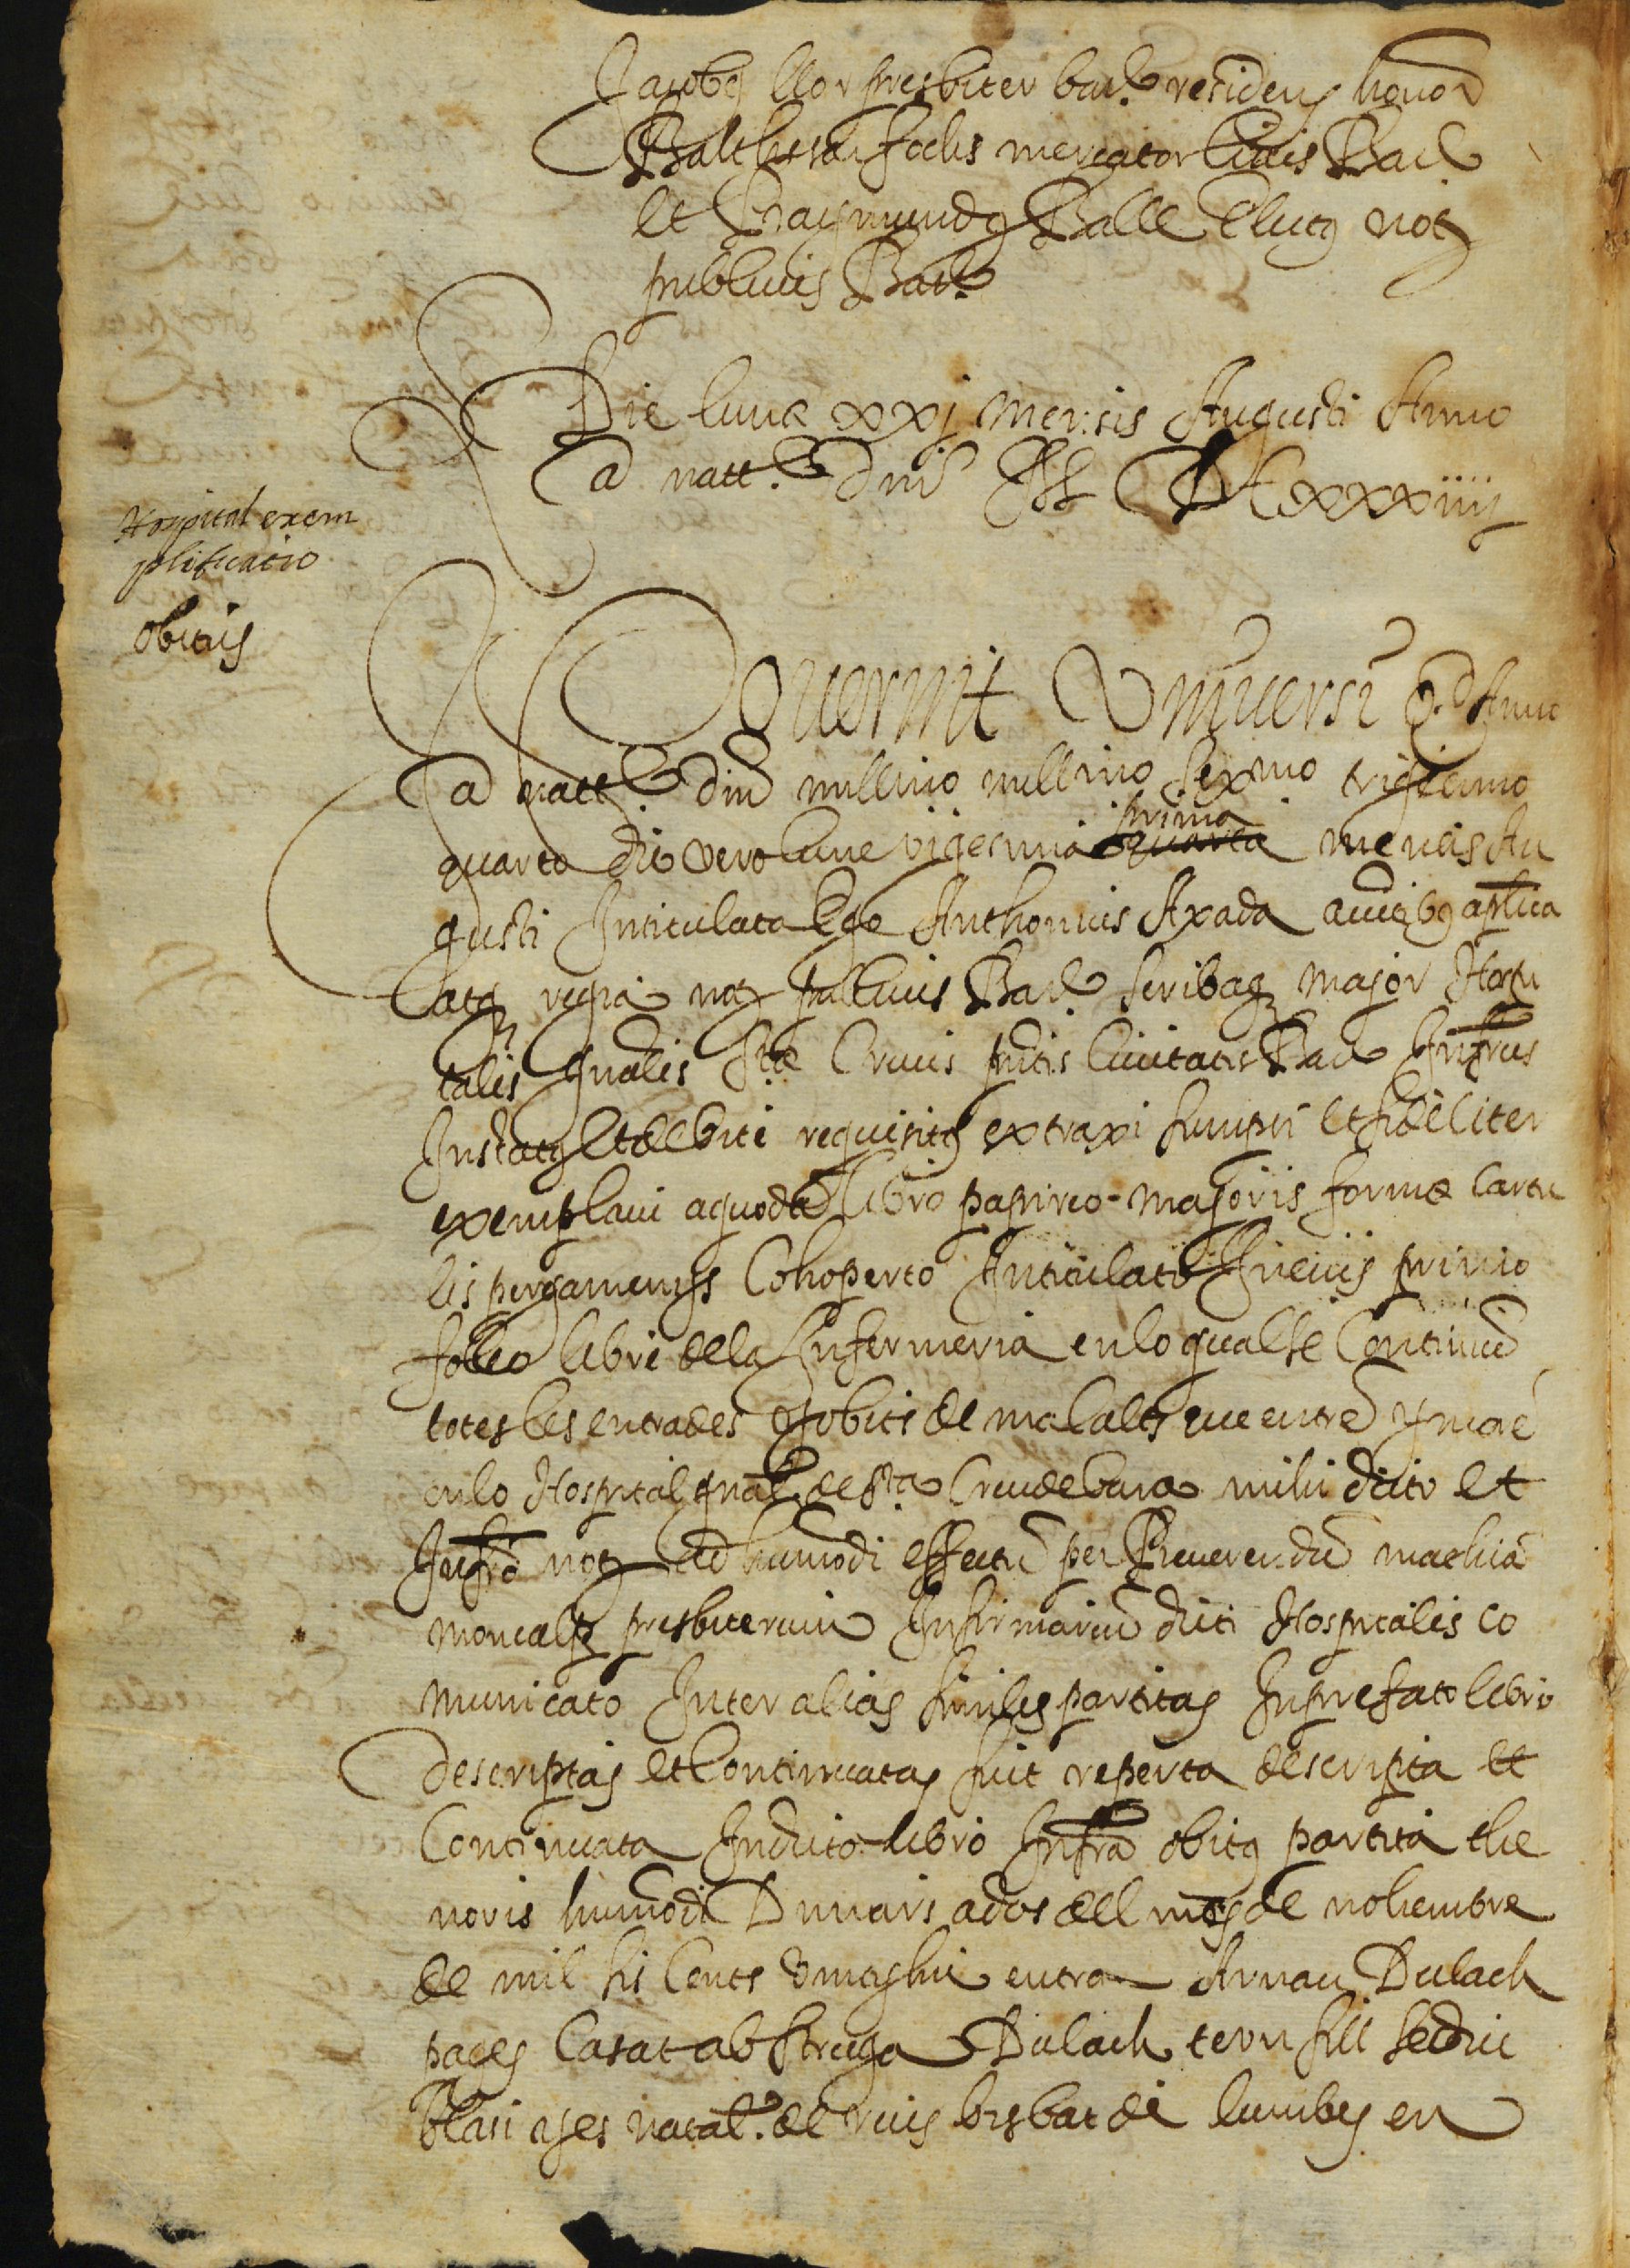 Jacobus llor presbiter bar. residens honor
Balthesar fochs mercator Civis Bar
et Raymundus Balle Elutus not
publicus Bar.
Die lune xxj mensis Augusti Anno
a natt. Dni M DC xxxiiij
Hospital exem
plificatio
obitus
Noverint Universi qd Anno
a natt. Dni millmo sexmo trigesimo
quarto die vero lune vigesima quarta prima mensis Au
gusti Intitulata Ego Anthonius Axada auctibus aplica
atq regia not publicus Bar. scribaq major Hospi
talis gnalis Ste Crucis pntis Civitatis Bar Infrus
Instatus et debite requisitus extraxi sumpsi et fideliter
exemplavi a quoda libro papireo majoris forme Cartu
lis pergameneis Cohoperto Intitulato In eius primo
folio libre de la Infermeria en lo qual se Continue
totes les entrades y obits de malalts que entre y more
en lo Hospital gnal de Sta Creu de bara mihi dicto et
Infro not ad humodi effectu per Reverendu mathia
moncalp presbiterum Infirmariu dicti Hospitalis co
municato Inter alias similes partitas In prefato libro
descriptas et Continuatas fuit reperta descripta et
Continuata In dicto libro Infra obitus partita the
noris humodi Dimars a dos del mes de nohembre
de mil sis Cents vint y hu entra Arnau Dulach
pages Casat ab Struga Dulach te vn fill se diu
Blasi y es natal. de ruis bisbat de lumbes en